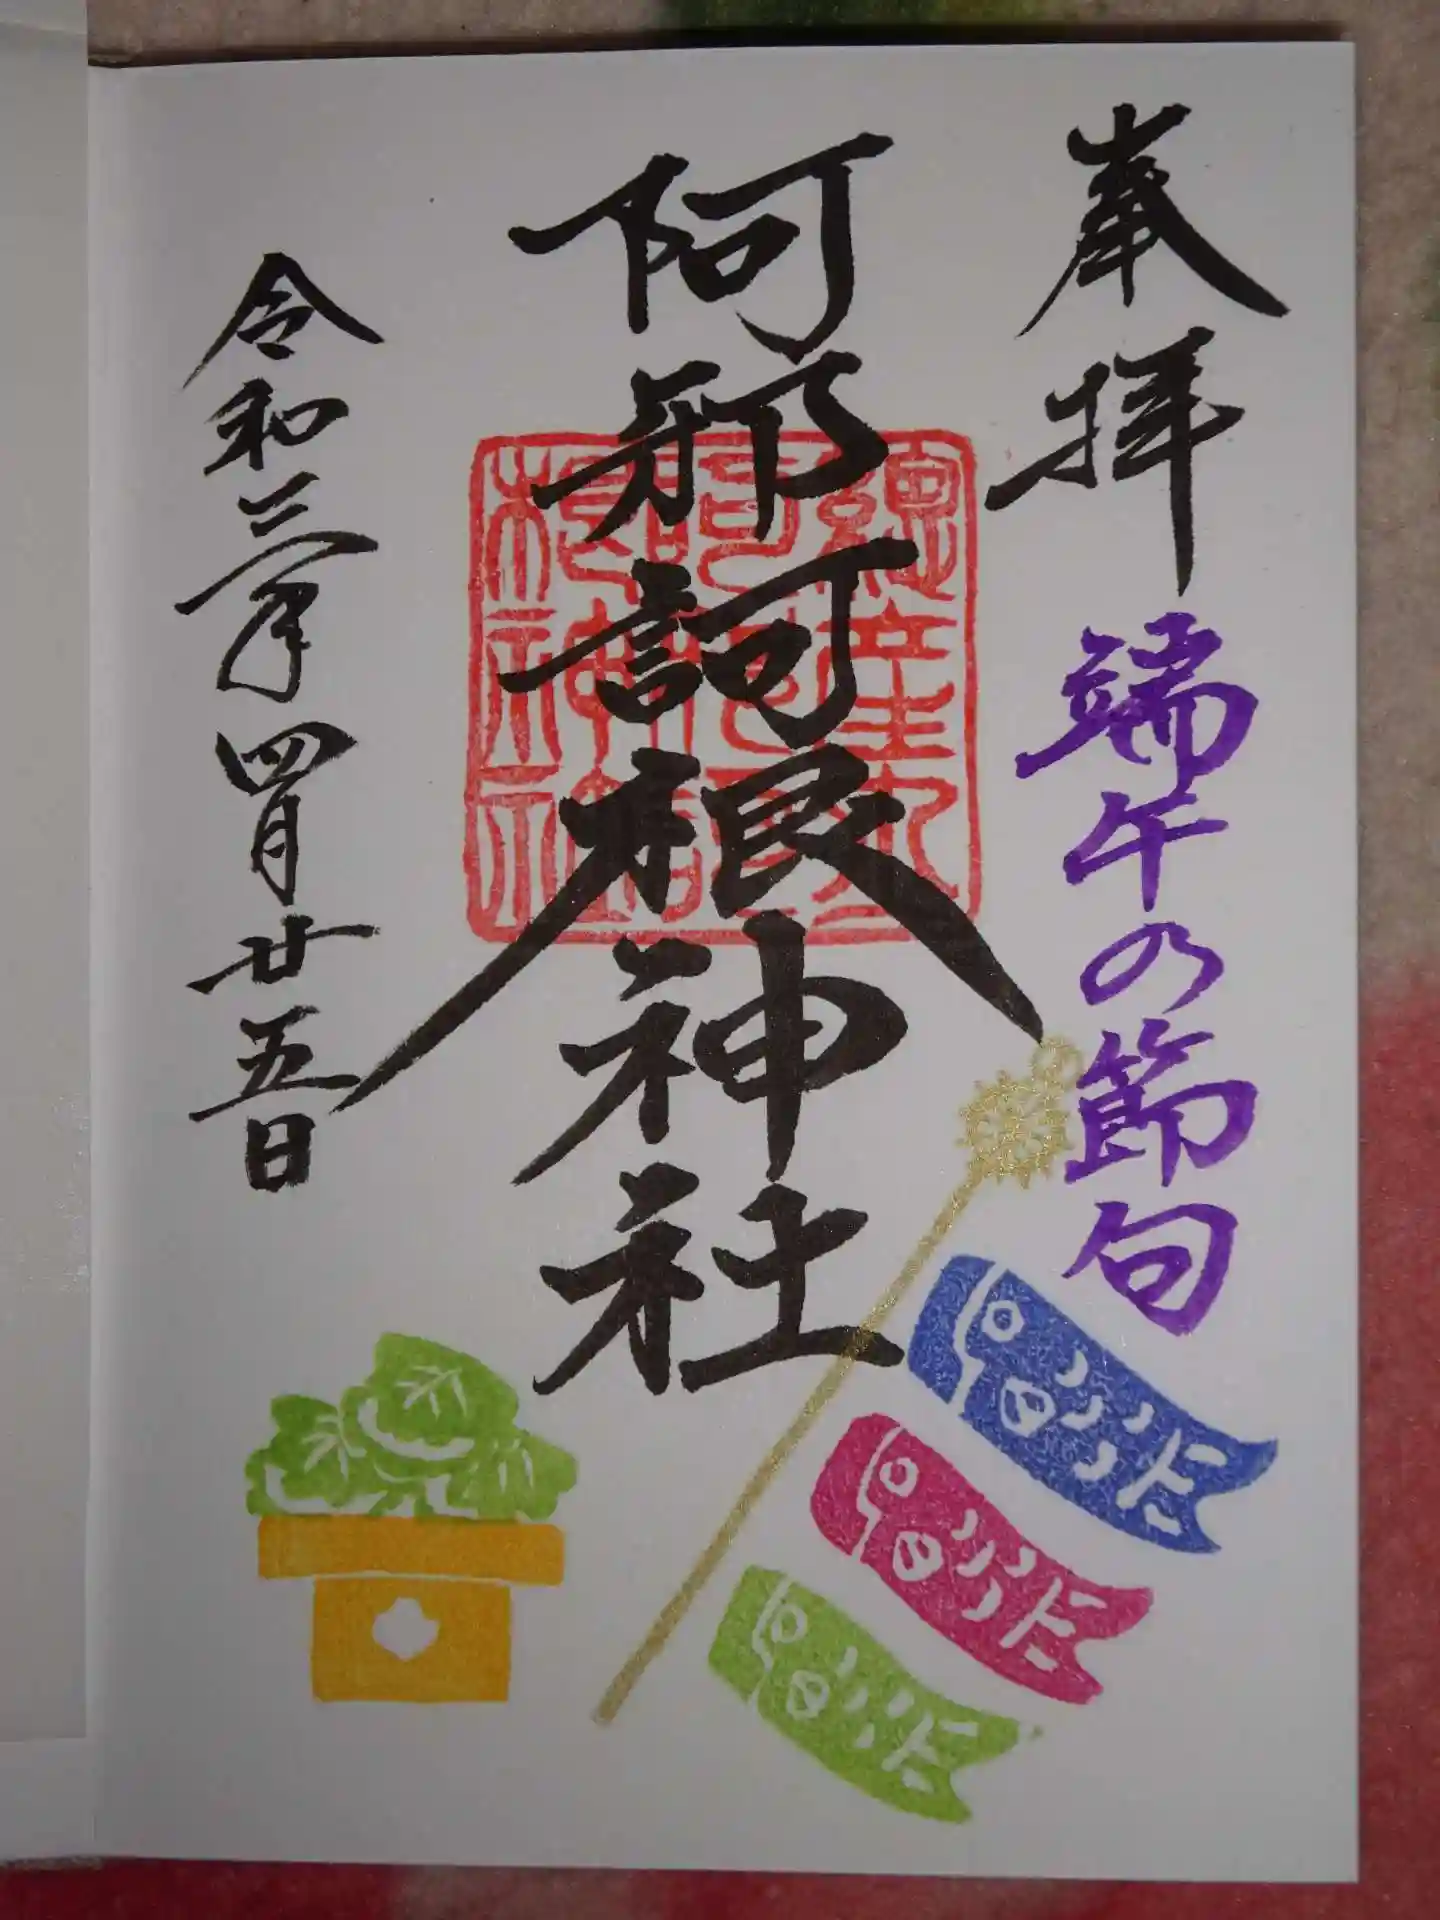 奉拝
端午の節句
阿邪訶根神社
令和三年四月廿五日